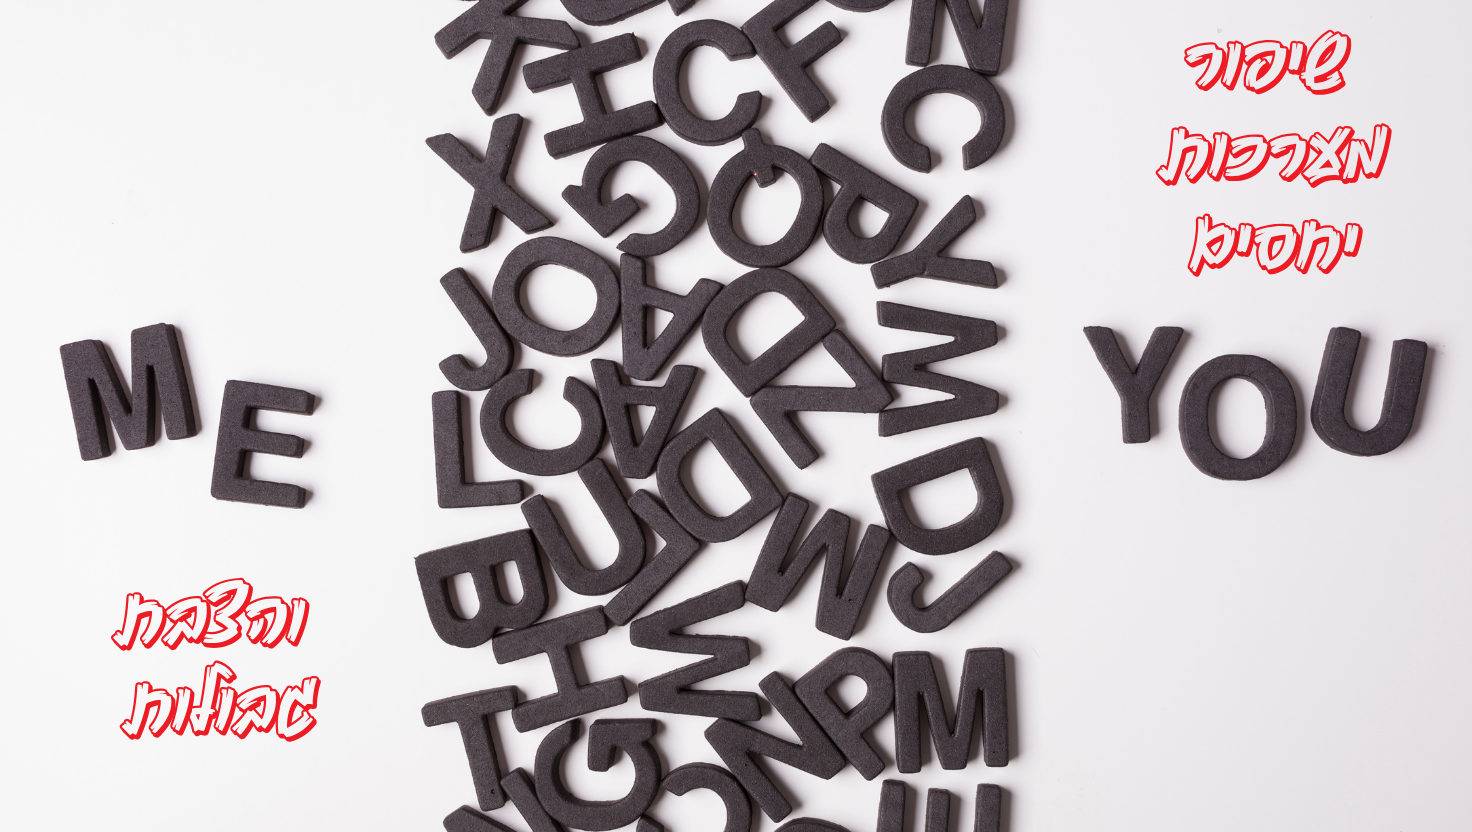 שיפור
מערכות
יחסים
ME
YOU
והצבת
גבולות